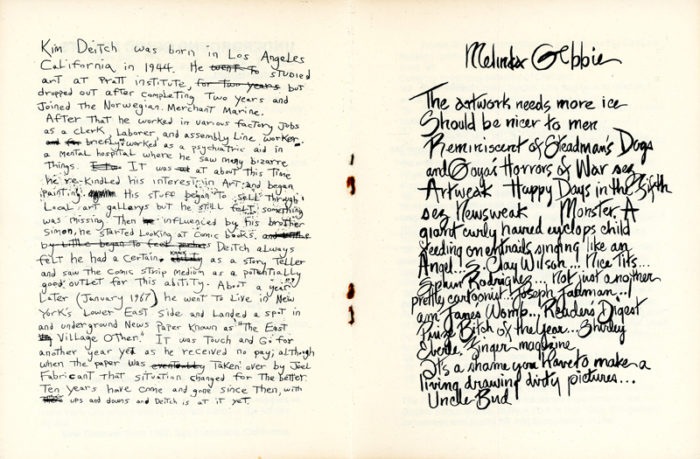 Kim Deitch was born in Los Angeles
California in 1944. He went to studied
art at Pratt institute, for two years but
dropped out after completing Two years and
Joined the Norwegian. Merchant Marine.
After That he worked in various factory Jobs
as a clerk, Laborer and assembly Line worker
briefly worked as a psychiatric aid in
a mental hospital where he saw many bizarre
Things. It was at about this Time
he re-kindled his interest in Art and began
painting. again His stuff began To sell Through
Local art gallerys but he still felt something
was missing. Then influenced by his brother
Simon, he started Looking at Comic books,
Deitch always
felt he had a certain knack as a story Teller
and saw the Comic strip medium as a potentially
good outlet for This ability. About a year
Later (January 1967) he went To Live in New
York's Lower East Side and Landed a spot in
and underground News Paper Known as "The East
Village Other." It was Touch and Go for
another year yet as he received no pay; although
when the paper was eventually Taken over by Joel
Fabricant That situation changed for The better.
Ten years have come and gone since Then, with
ups and downs and Deitch is at it yet.
Melinda Gebbie
The artwork needs more ice
Should be nicer to men
Reminiscent of Steadman's Dogs
and Goya's Horrors of War sez
Artweak Happy Days in the
sez Newsweak Monster, A
giant curly haired cyclops child
feeding on entrails singing like an
Angel... S. Clay Wilson... Nice Tits...
Spain Rodriguez... not just another
pretty cartoonist. Joseph
am James Womb... Reader's Digest
Prize Bitch of the Year... Shirley
Eberle, Zinger magazine
It's a shame you have to make a
living drawing dirty pictures...
Uncle Bud